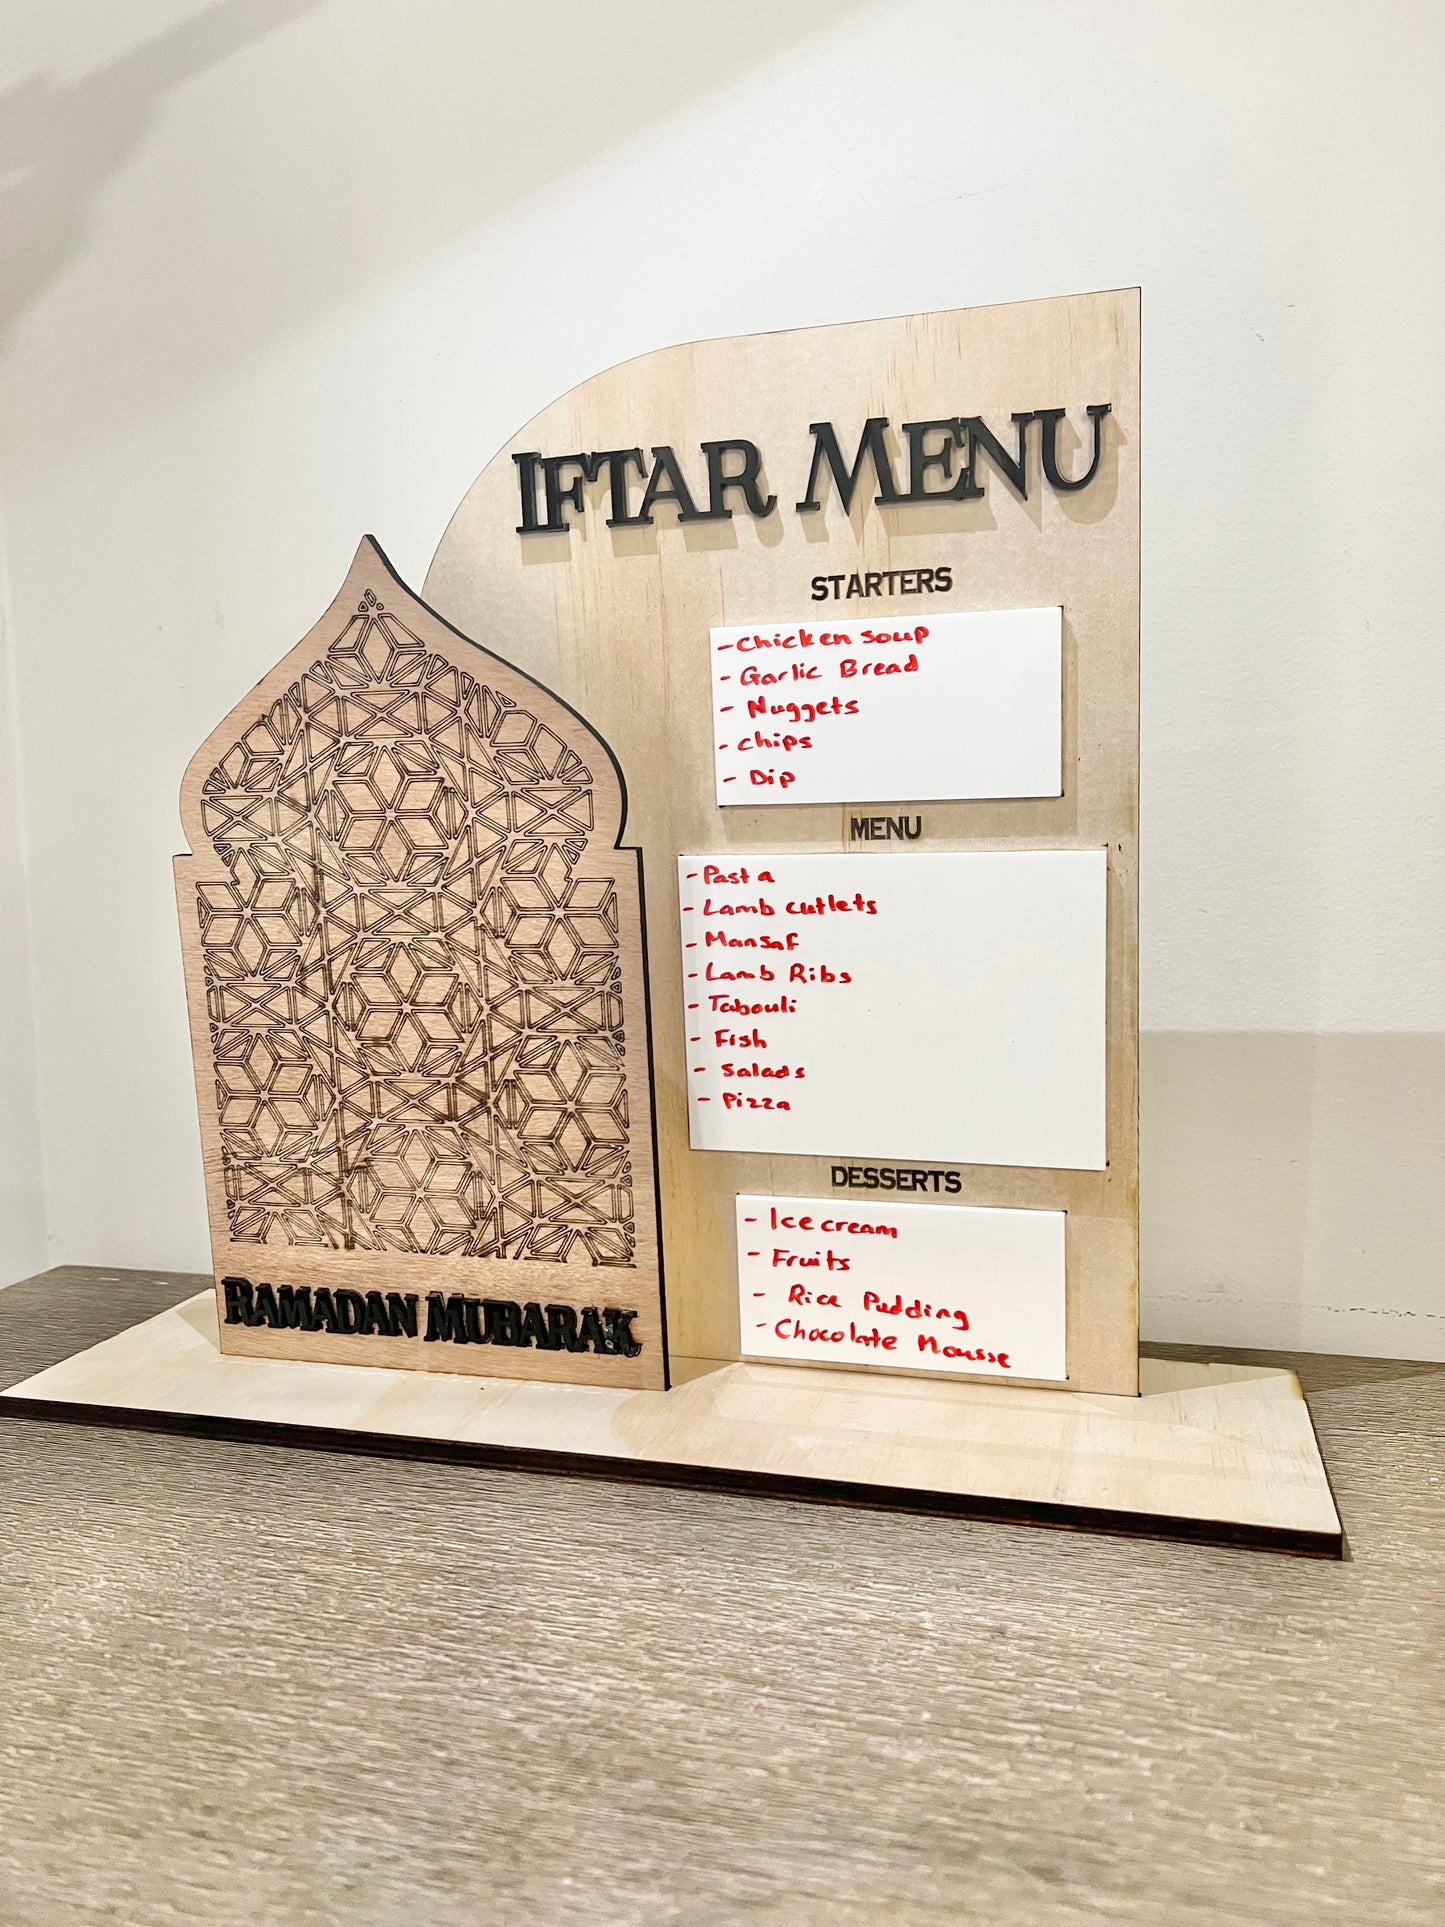 IFTAR MENU
STARTERS
- Chicken soup
- Garlic Bread
- Nuggets
- chips
- Dip
MENU
- Pasta
- Lamb cutlets
- Mansaf
- Lamb Ribs
- Tabouli
- Fish
- Salads
- Pizza
DESSERTS
- Ice cream
- Fruits
- Rice Pudding
- Chocolate Mousse
RAMADAN MUBARAK